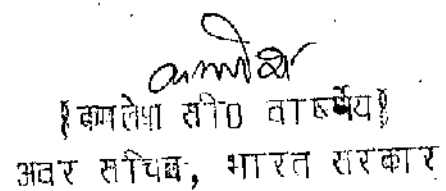 कमलेश
[कमलेश सी0 वार्ष्णेय]
अवर सचिव, भारत सरकार